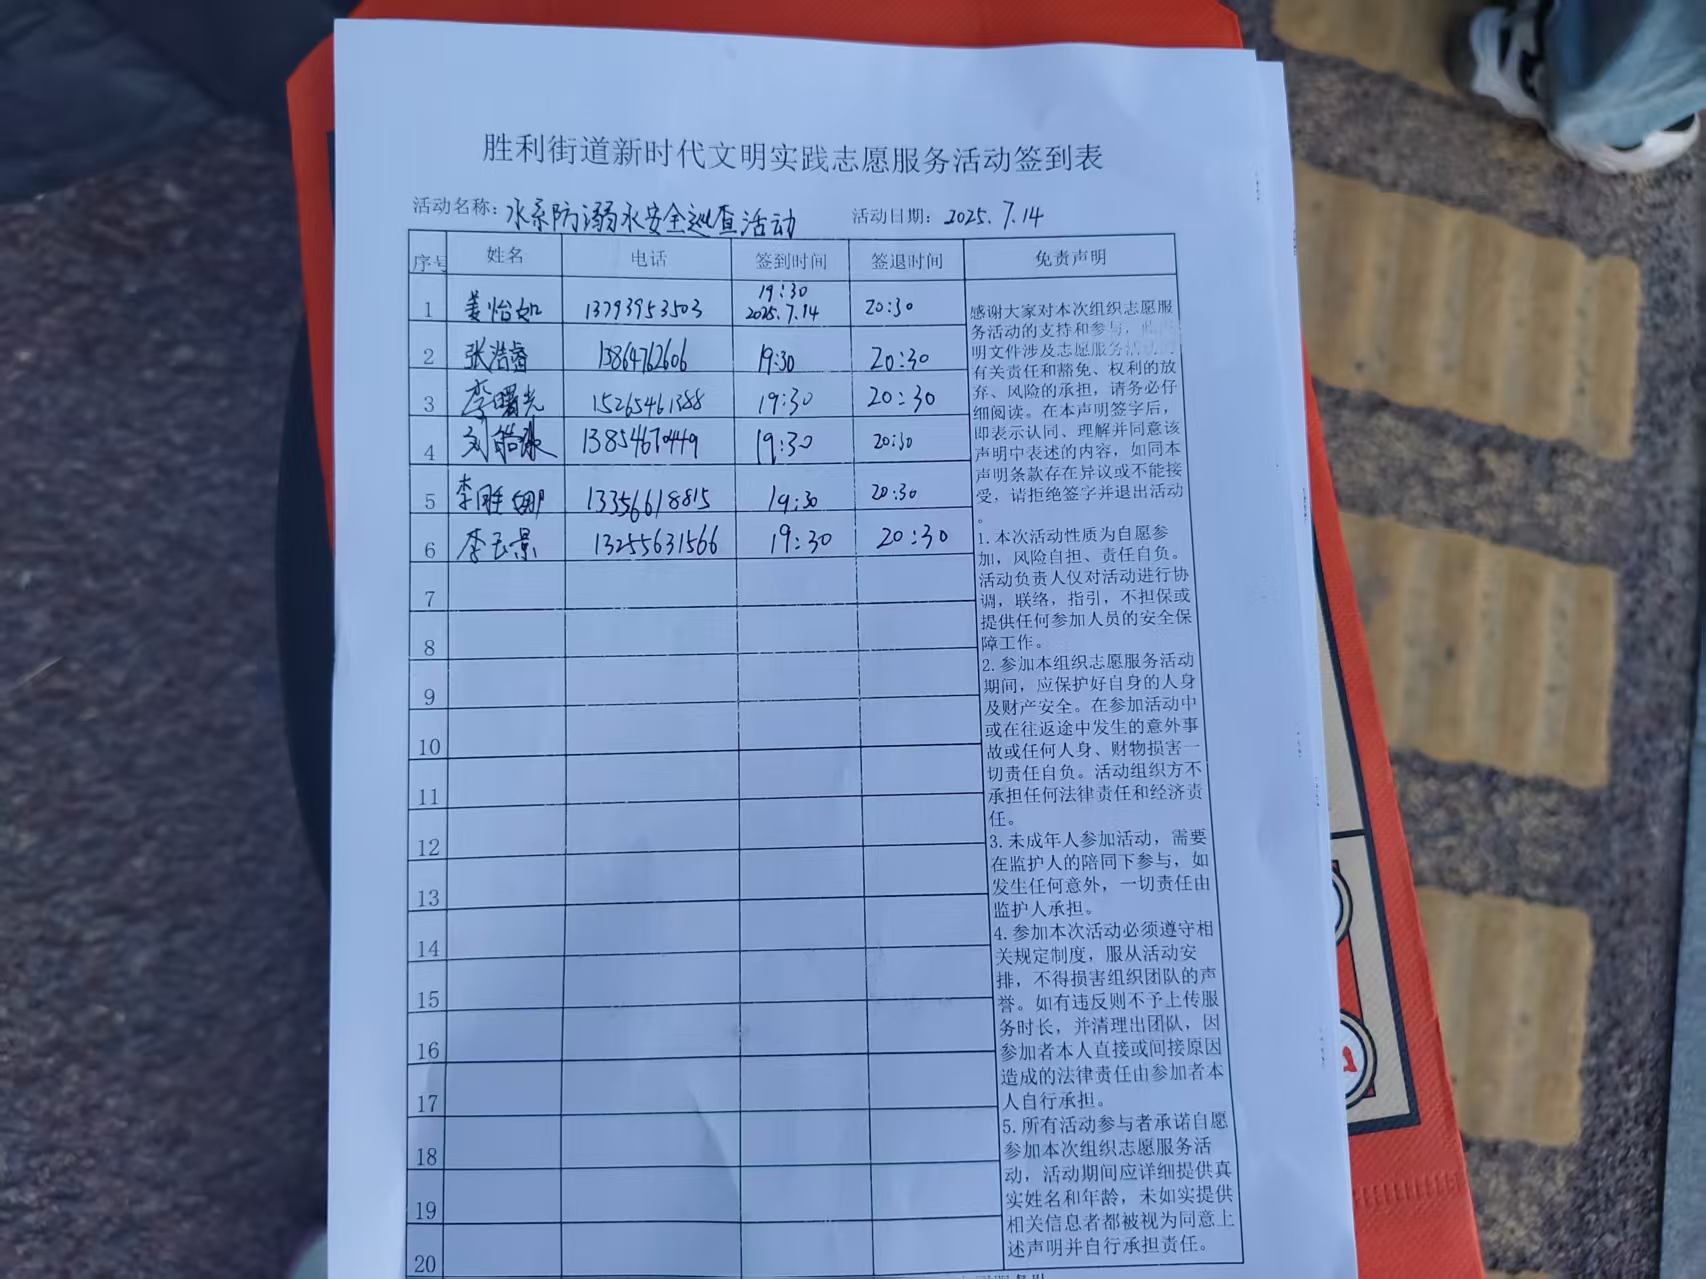 胜利街道新时代文明实践志愿服务活动签到表
活动名称：水系防溺水安全巡查活动 活动日期：2025.7.14
序号 姓名 电话 签到时间 签退时间 免责声明
1 姜怡如 13793953503 19:30 2025.7.14 20:30
2 张浩睿 13864762606 19:30 20:30
3 李曙光 15265461388 19:30 20:30
4 刘皓冰 13854670449 19:30 20:30
5 李胜娜 13356618815 19:30 20:30
6 李玉景 13255631566 19:30 20:30
7
8
9
10
11
12
13
14
15
16
17
18
19
20
感谢大家对本次组织志愿服
务活动的支持和参与，此声
明文件涉及志愿服务活动
有关责任和豁免、权利的放
弃、风险的承担，请务必仔
细阅读。在本声明签字后，
即表示认同、理解并同意该
声明中表述的内容，如同本
声明条款存在异议或不能接
受，请拒绝签字并退出活动
。
1.本次活动性质为自愿参
加，风险自担、责任自负。
活动负责人仅对活动进行协
调，联络，指引，不担保或
提供任何参加人员的安全保
障工作。
2.参加本组织志愿服务活动
期间，应保护好自身的人身
及财产安全。在参加活动中
或在往返途中发生的意外事
故或任何人身、财物损害一
切责任自负。活动组织方不
承担任何法律责任和经济责
任。
3.未成年人参加活动，需要
在监护人的陪同下参与，如
发生任何意外，一切责任由
监护人承担。
4.参加本次活动必须遵守相
关规定制度，服从活动安
排，不得损害组织团队的声
誉。如有违反则不予上传服
务时长，并清理出团队，因
参加者本人直接或间接原因
造成的法律责任由参加者本
人自行承担。
5.所有活动参与者承诺自愿
参加本次组织志愿服务活
动，活动期间应详细提供真
实姓名和年龄，未如实提供
相关信息者都被视为同意上
述声明并自行承担责任。